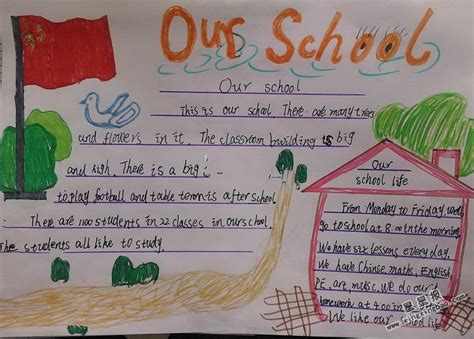 Our School
Our school
This is our school There are many trees
and flowers in it. The classroom building is big
and high. There is a big
to play football and table tennis after school
There are 1100 students in 22 classes in our school.
The students all like to study.
Our
school life
From Monday to Friday, we
go to school at 8:00 in the morning
We have six lessons every day.
We have Chinse, maths, English,
PE, art, music, We do our
homework at 4:00 in
We like our school life